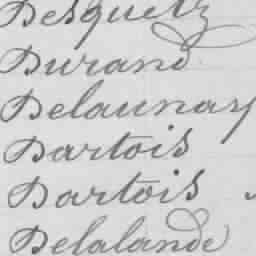 Desquetz
Durand
Delaunay
Dartois
Dartois
Delalande